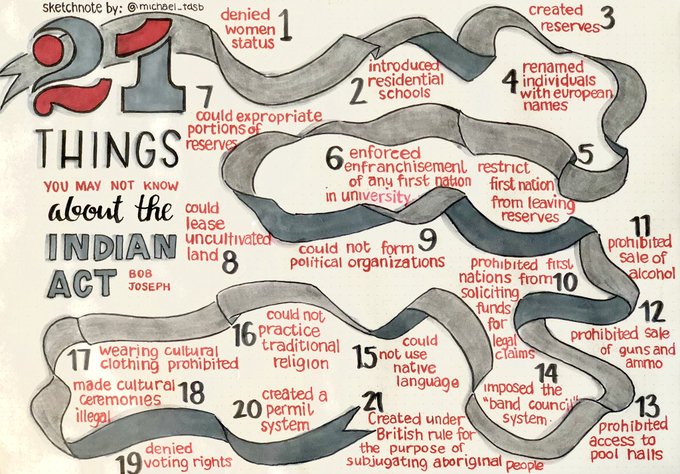 sketchnote by: @michael_tdsb
21
THINGS
YOU MAY NOT KNOW
about the
INDIAN
ACT BOB
JOSEPH
1
denied
women
status
2
introduced
residential
schools
3
created
reserves
4
renamed
individuals
with european
names
5
restrict
first nation
from leaving
reserves
6
enforced
enfranchisement
of any first nation
in university
7
could expropriate
portions of
reserves
8
could
lease
uncultivated
land
9
could not form
political organizations
10
prohibited first
nations from
soliciting
funds
for
legal
claims
11
prohibited
sale of
alcohol
12
prohibited sale
of guns and
ammo
13
prohibited
access to
pool halls
14
imposed the
"band council"
system
15
could
not use
native
language
16
could not
practice
traditional
religion
17
wearing cultural
clothing prohibited
18
made cultural
ceremonies
illegal
19
denied
voting rights
20
created a
permit
system
21
Created under
British rule for
the purpose of
subjugating aboriginal people